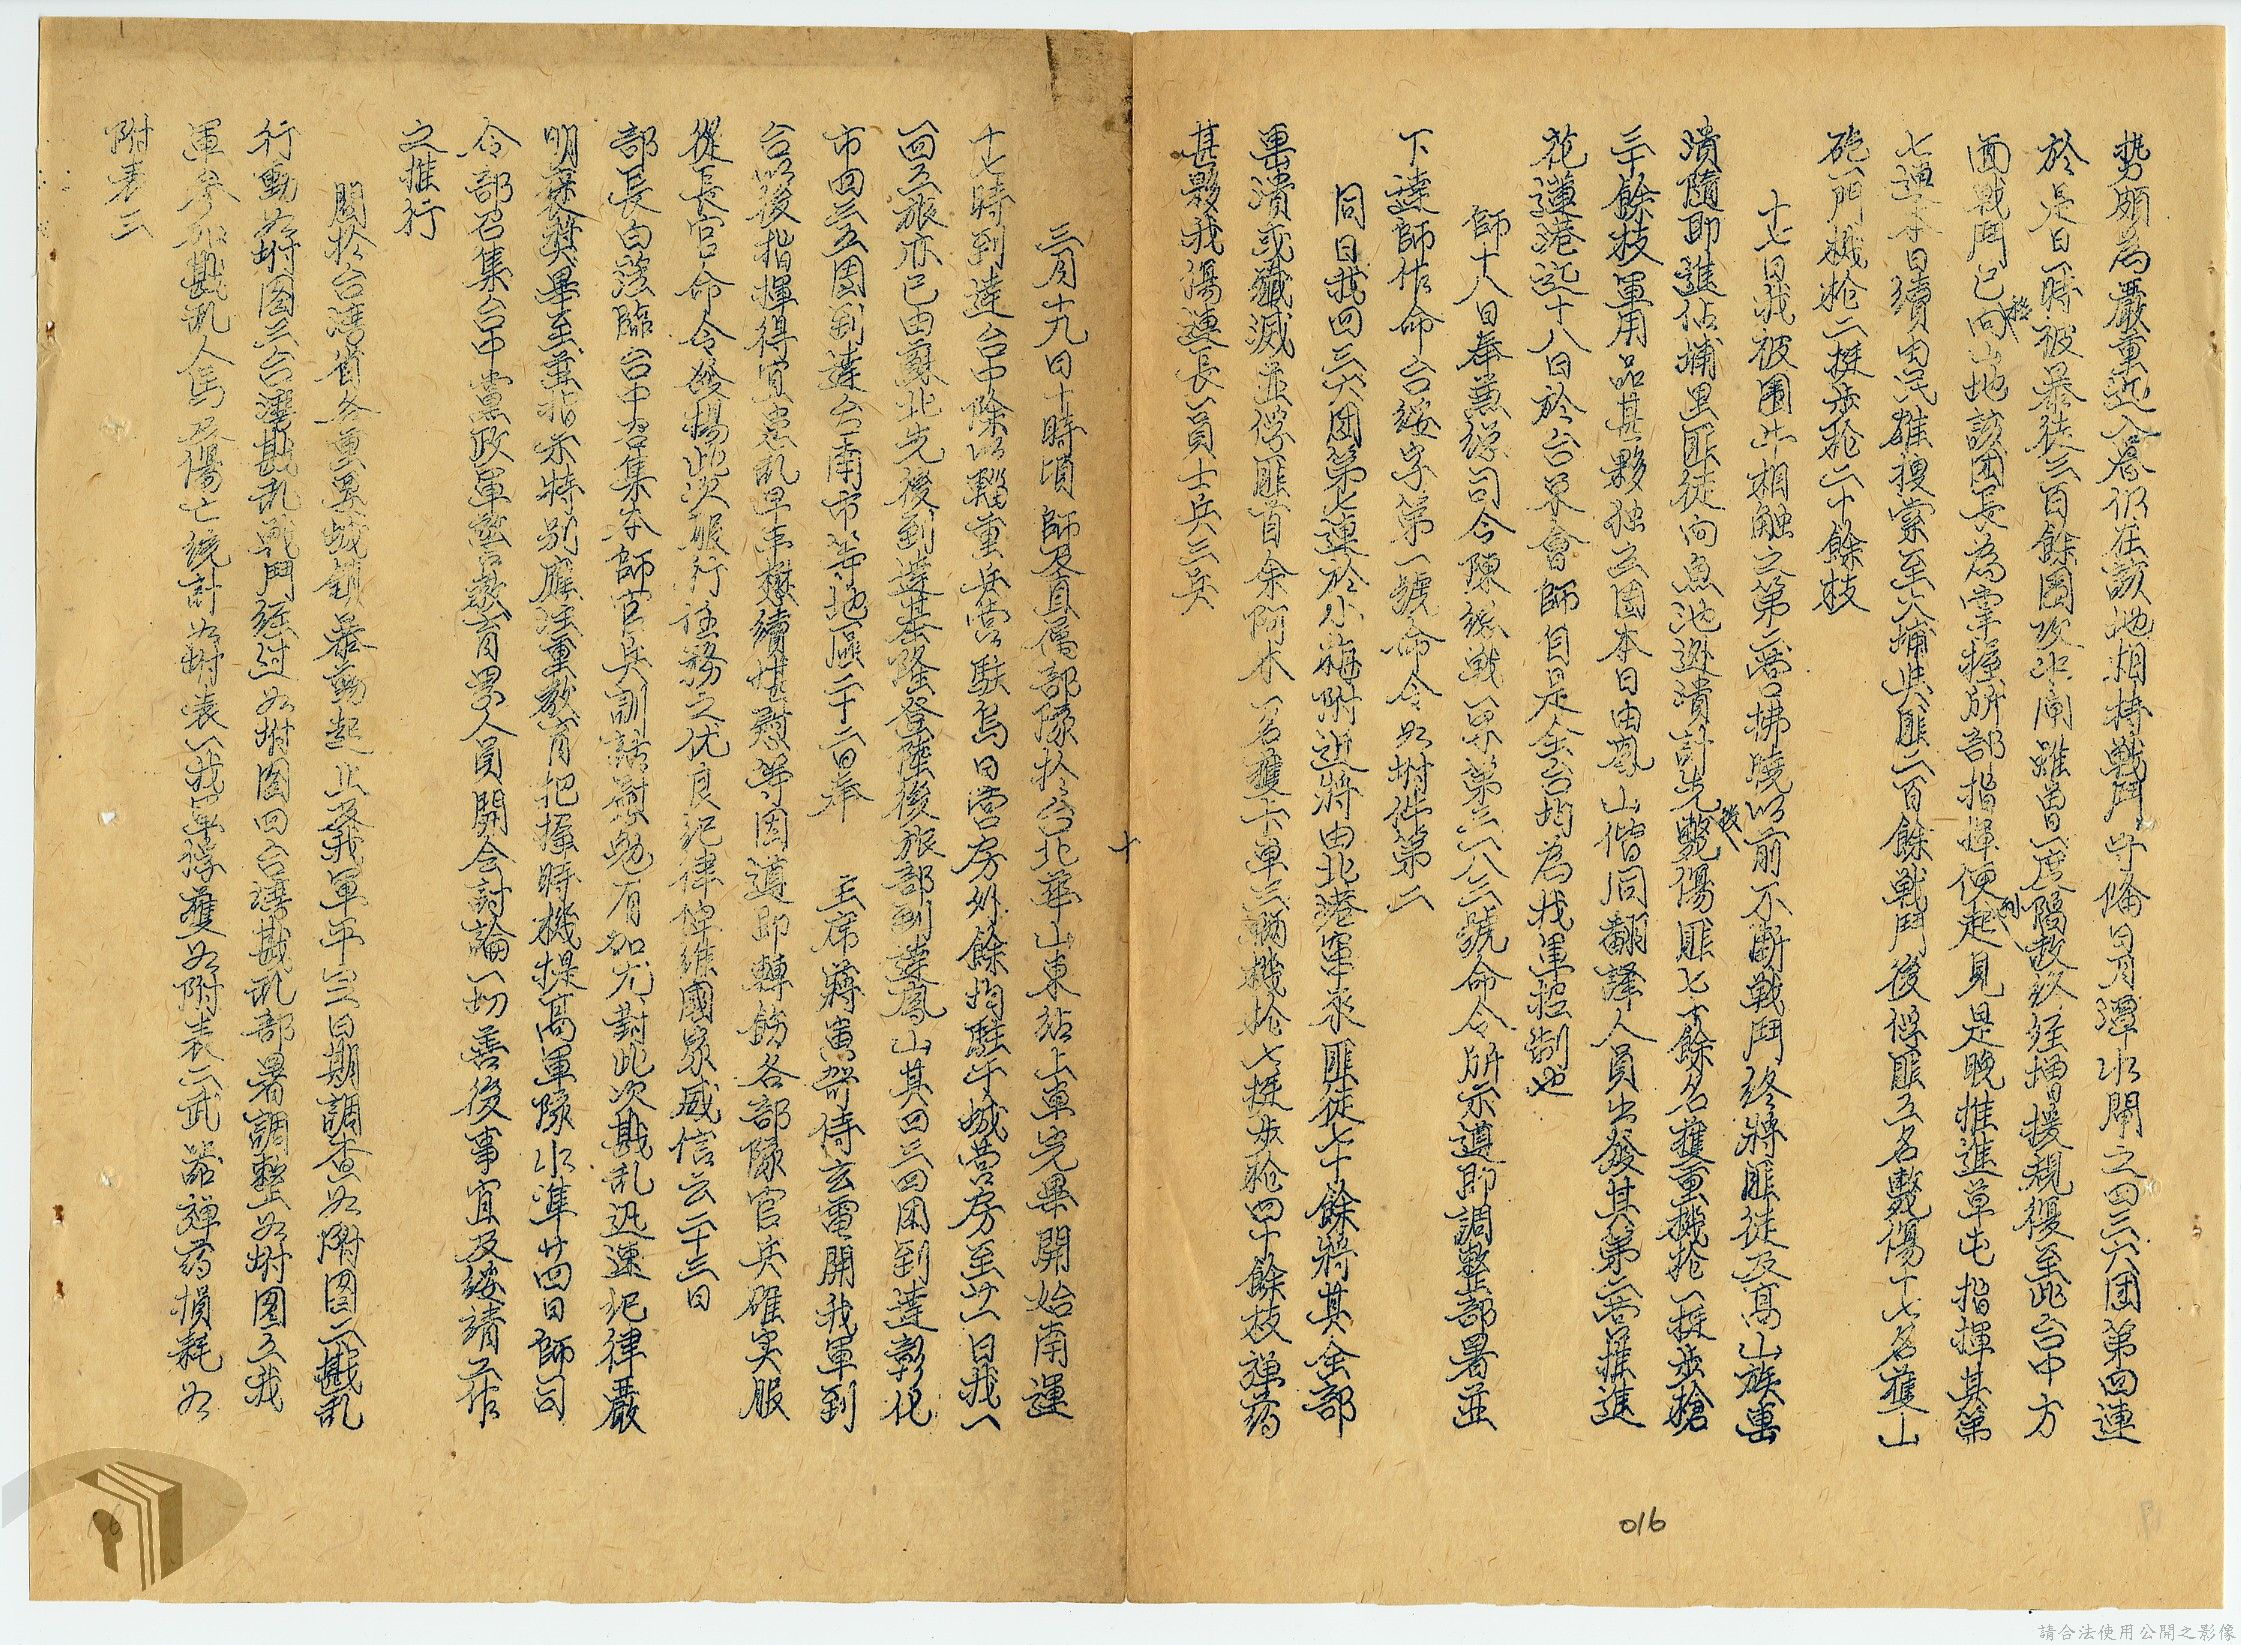 勢頗為嚴重迄入暮仍在該地相持戰鬥守備日月潭水閘之四三六团第四連
於是日一時被暴徒三百餘圍攻水閘雖曾一度陷敵欵经增援規復至此台中方
面戰鬥已向山地該团長為掌握所部指揮便起見是晚推進草屯指揮其第
七連本日續由民雄搜索至大埔與匪二百餘戰鬥後俘匪五名斃傷十七名獲山
砲一門機枪二挺步枪二十餘枝
十七日我被围牛相觸之第二营拂曉以前不断戰鬥終將匪徒及高山族击
潰隨即進佔埔里匪徒向魚池逊潰計先後斃傷匪七十餘名獲重機抢一挺步槍
三十餘枝軍用品甚夥独立团本日由鳳山偕同翻譯人員出發其第二营推進
花蓮港迄十八日於台東會師自是全台均為我軍控制也
師十八日奉兼總司令陳綏戰一第三一八三號命令所示遵即調整部署並
下達師作命台綏字第一號命令如坿件第二
同日我四三六团第七連於小梅附近將由北港窜來匪徒七十餘將其全部
击潰或殲滅並俘匪首余阿木一名獲卡車三輛機抢七挺步枪四十餘枝彈葯
甚夥我傷連長一員士兵三兵
十
三月十九日十時頃 師及直属部隊於台北華山東站上車完畢開始南運
十七時到達台中除以輜重兵营駐烏日营房外餘均駐干城营房至廿一日我一
四五旅亦已由蘇北先後到達基隆登陸後旅部到達鳳山其四三四团到達彰化
市四三五团到達台南市等地區二十二日奉 主席蔣寅 侍玄電開我軍到
台以後指揮得宜患乱早弭懋績堪慰等因遵即轉飭各部隊官兵確实服
從長官命令發揚此次服行任務之优良紀律俾維國家威信云二十三日
部長白蒞臨台中召集本師官兵訓話慰勉有加尤對此次戡乱迅速紀律嚴
明褒獎畢至並指示特别應注重教育把握時機提高軍隊水準廿四日師司
令部召集台中黨政軍警教育界人員開会討論一切善後事宜及綏靖工作
之推行
關於台湾省各重要城鎮暴動起止及我軍平 日期調查如附图二戡乱
行動如坿图三台灣戡乱戰鬥经过如坿图四台湾戡乱部署調整如坿图五我
軍参加戡乱人馬及傷亡統計如坿表一我軍俘獲如附表二武器弹葯損耗如
附表三
016
請合法使用公開之影像